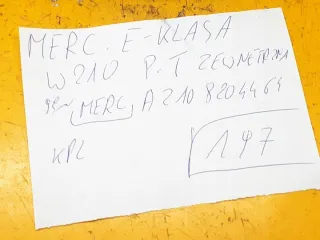 MERC. E-KLASA
W210 P.T ZEWNĘTRZNA
MERC A210 8204464
KPL
147